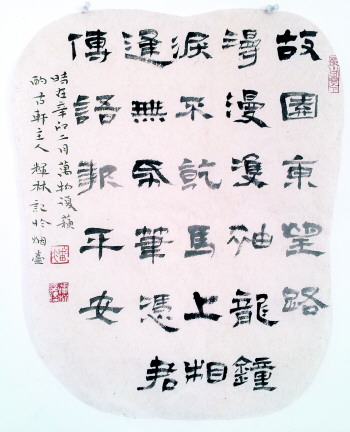 故園東望路
漫漫雙袖龍鐘
淚不乾馬上相
逢無帋筆憑君
傳語報平安
時在辛卯二月萬物復蘓
酌古軒主人輝林記於烟臺